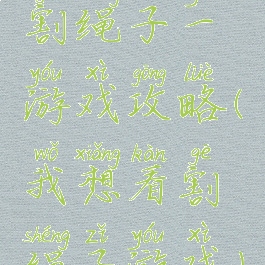 割绳子一
yóu xì gōng lüè
游戏攻略(
wǒ xiǎng kàn gē
我想看割
shéng zǐ yóu xì
绳子游戏)